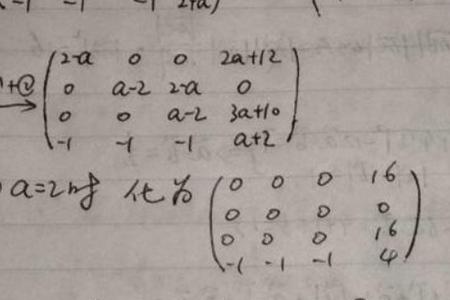 -1 -1 -1 2+a
+② → ( 2-a 0 0 2a+12
0 a-2 2-a 0
0 0 a-2 3a+10
-1 -1 -1 a+2 )
a=2时 化为 ( 0 0 0 16
0 0 0 0
0 0 0 16
-1 -1 -1 4 )